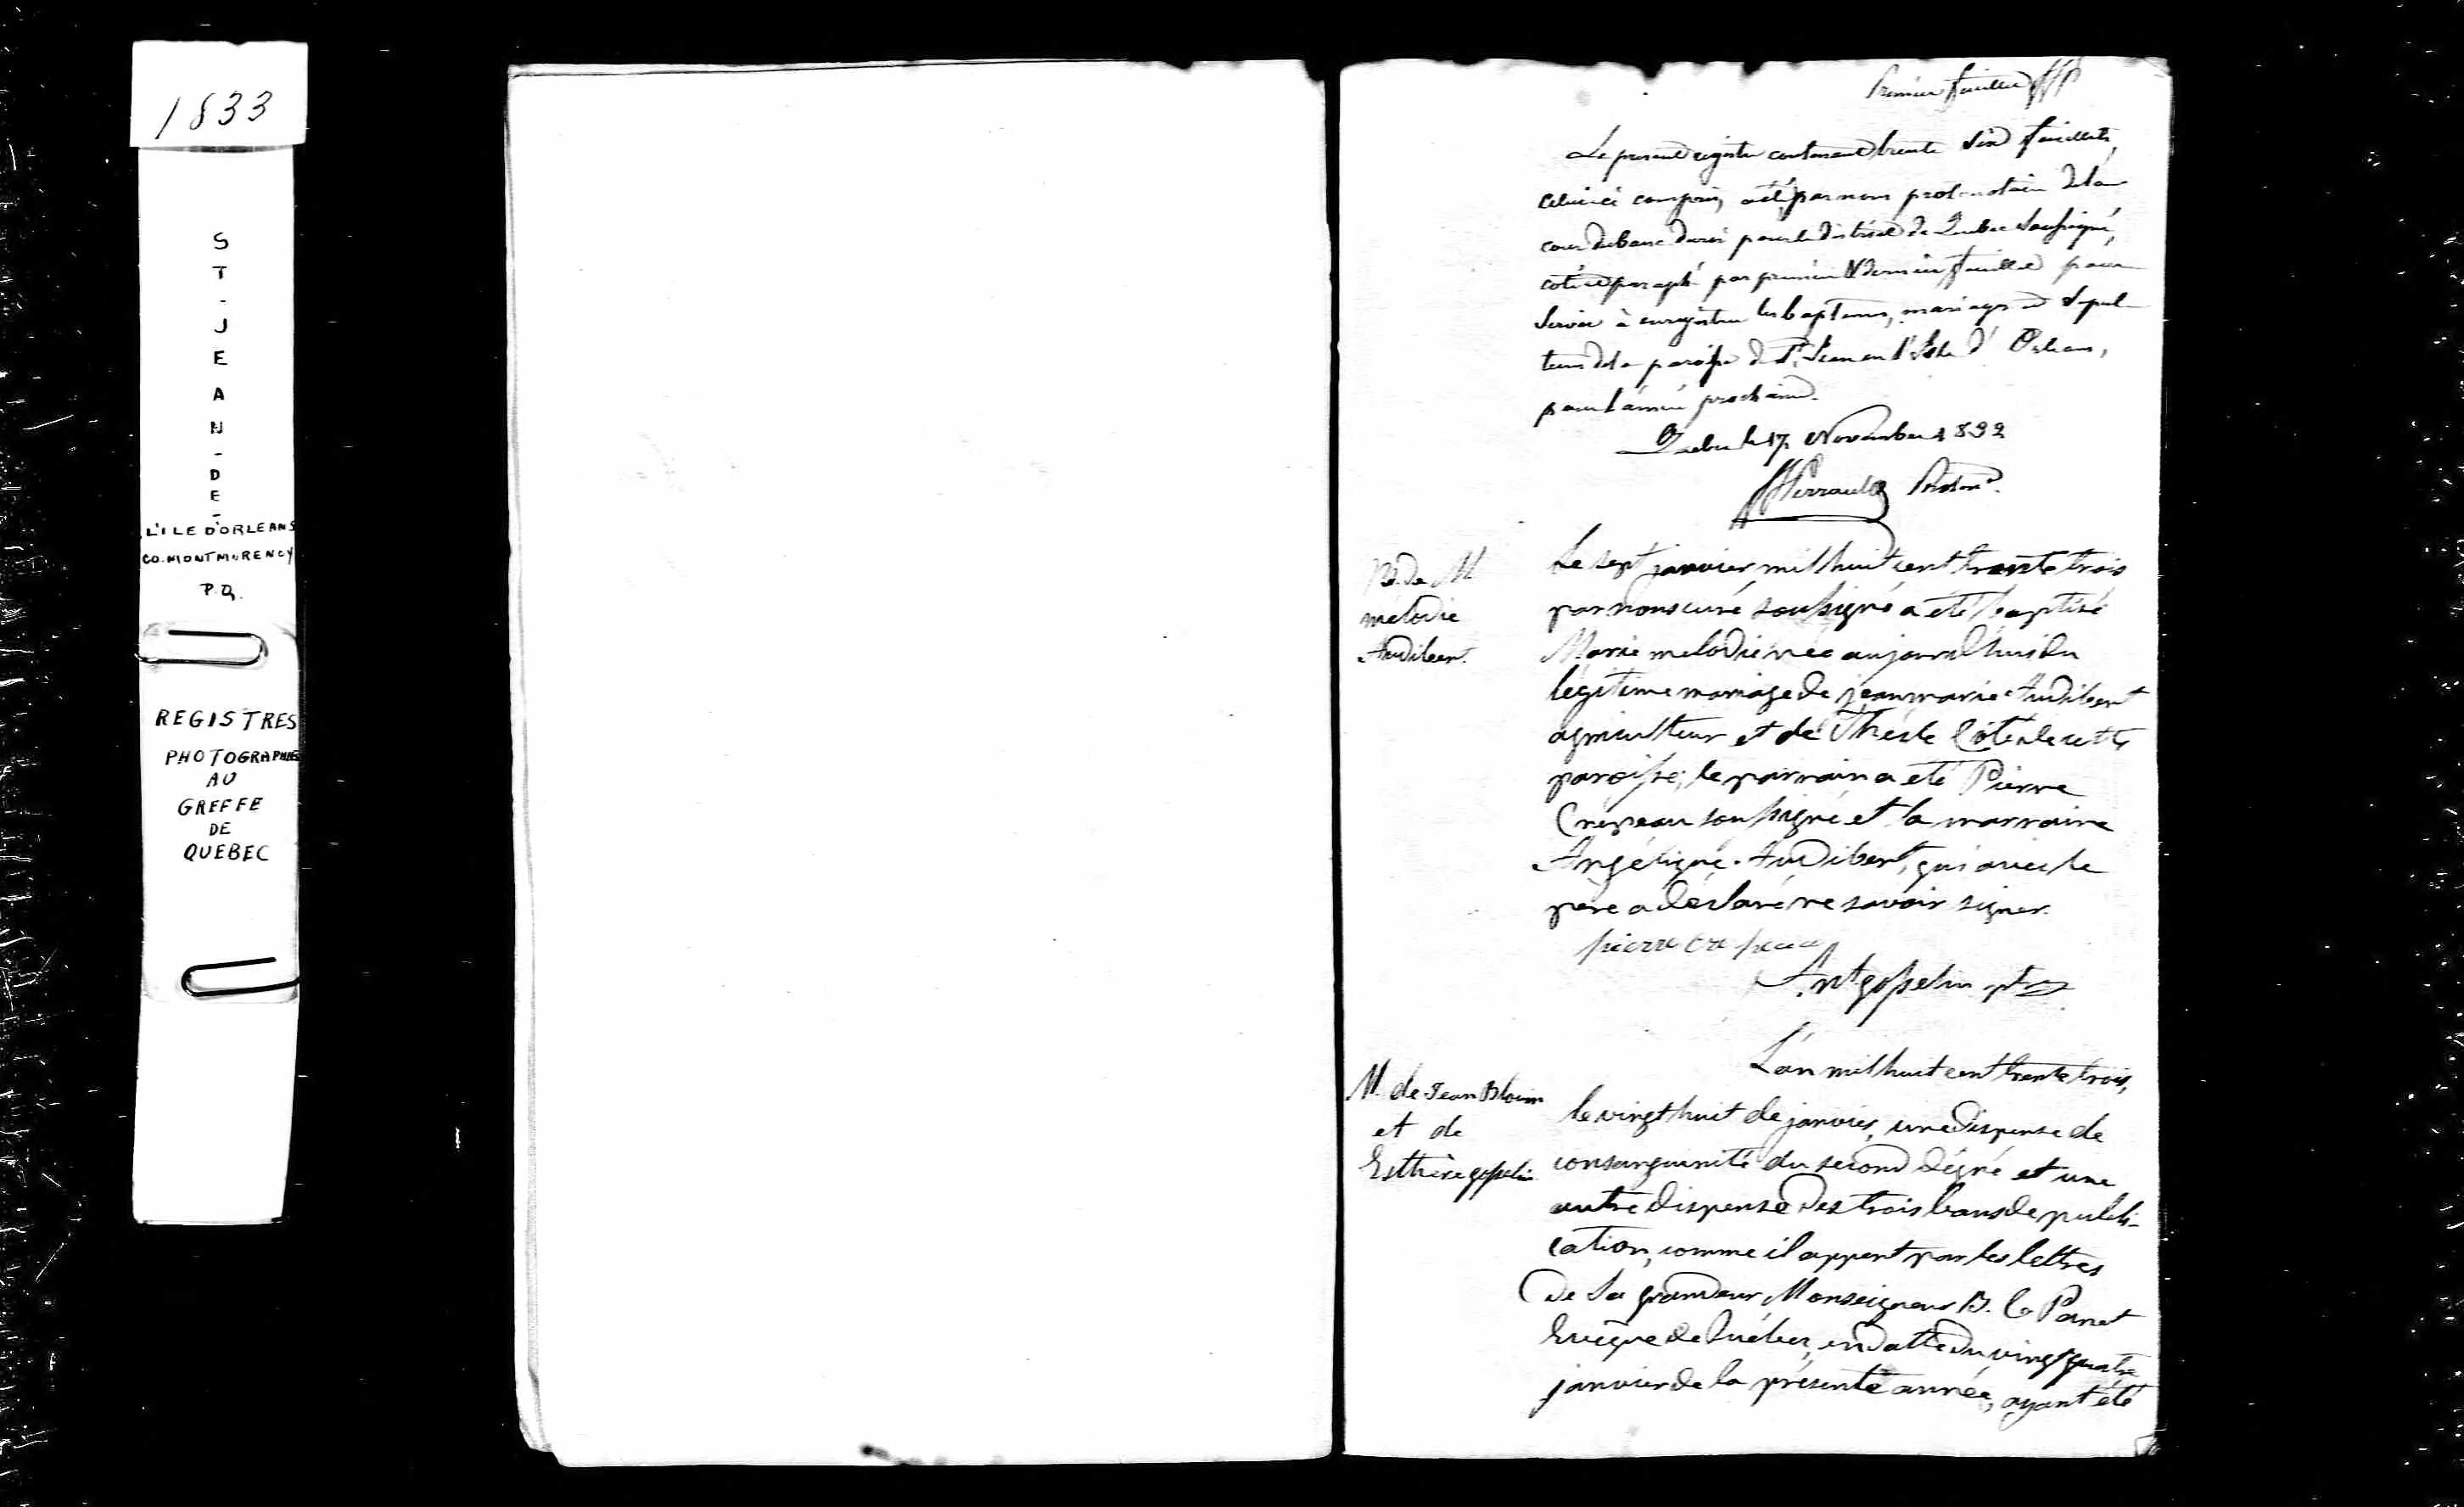 1833
ST-JEAN-DE-
L'ILE D'ORLEANS
CO. MONTMORENCY
P.Q.
REGISTRES
PHOTOGRAPHIES
AU
GREFFE
DE
QUEBEC
Premier feuillet
Le present registre contenant trente six feuillets,
celui ci compris, a été par nous protonotaire de la
cour du banc du roi pour le district de Quebec soussigné,
coté et paraphé par premier & dernier feuillet pour
servir à enregistrer les baptemes, mariages et sepul-
tures de la paroisse de St. Jean en l'Isle d'Orleans,
pour l'année prochaine.
Quebec le 17 Novembre 1832
Perrault
B. de M.
melodie
Audibert.
Le sept janvier mil huit cent trente trois
par nous curé soussigné a été baptisé
Marie melodie née aujourd'hui du
légitime mariage de jean marie Audibert
agriculteur et de Thècle Côté de cette
paroisse; le parrain a été Pierre
Crépeau soussigné et la marraine
Angélique Audibert, qui avec le
père a déclaré ne savoir signer.
pierre crepeau
Ant gosselin ptre
M. de Jean Blouin
et de
Esthère gosselin
L'an mil huit cent trente trois,
le vingt huit de janvier, une dispense de
consanguinité du second dégré et une
autre dispense des trois bans de publi-
cation, comme il appert par les lettres
de Sa grandeur Monseigneur B. C. Panet
Evêque de Québec, en datte du vingt quatre
janvier de la présente année, ayant été